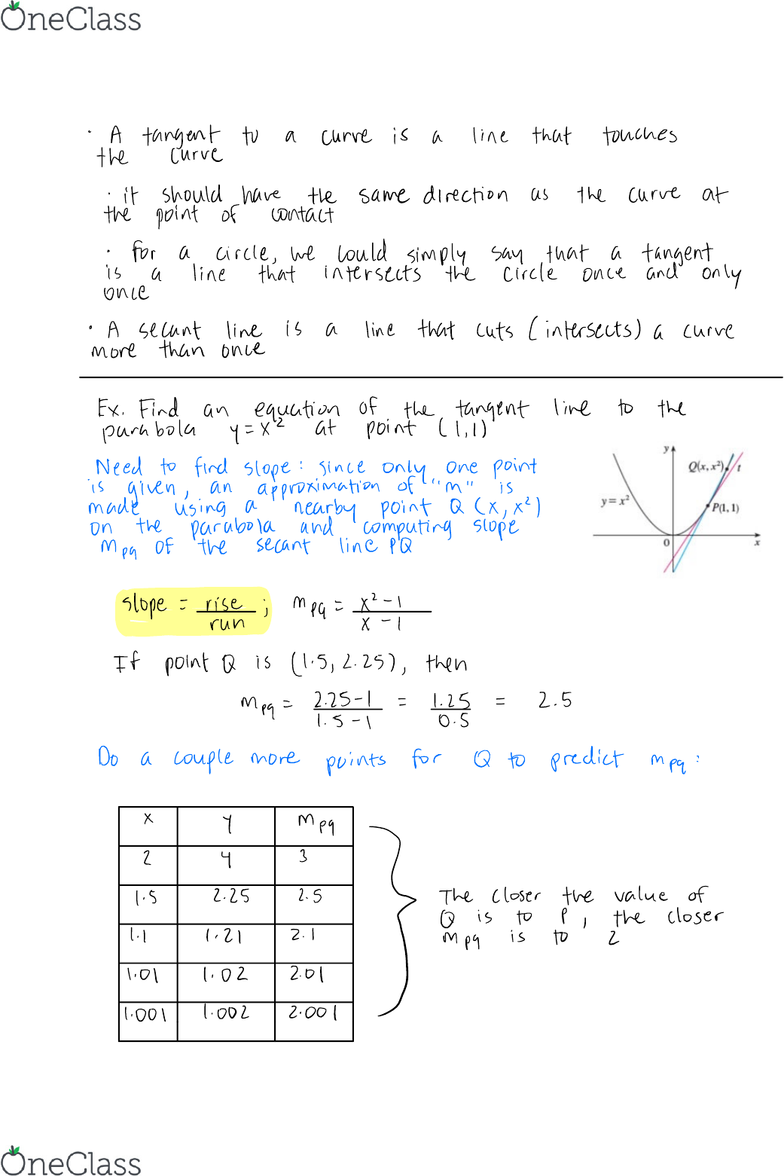 OneClass
· A tangent to a curve is a line that touches
the curve
· it should have the same direction as the curve at
the point of contact
· for a circle, we could simply say that a tangent
is a line that intersects the circle once and only
once
· A secant line is a line that cuts (intersects) a curve
more than once
Ex. Find an equation of the tangent line to the
parabola y=x² at point (1,1)
Need to find slope: since only one point
is given, an approximation of "m" is
made using a nearby point Q (x, x²)
on the parabola and computing slope
mpq of the secant line PQ
y
Q(x, x²)
t
y = x²
P(1, 1)
0
x
slope = rise/run ; mpq = x²-1/x-1
If point Q is (1.5, 2.25), then
mpq = 2.25-1/1.5-1 = 1.25/0.5 = 2.5
Do a couple more points for Q to predict mpq:
x y mpq
2 4 3
1.5 2.25 2.5
1.1 1.21 2.1
1.01 1.02 2.01
1.001 1.002 2.001
The closer the value of
Q is to P, the closer
mpq is to 2
OneClass